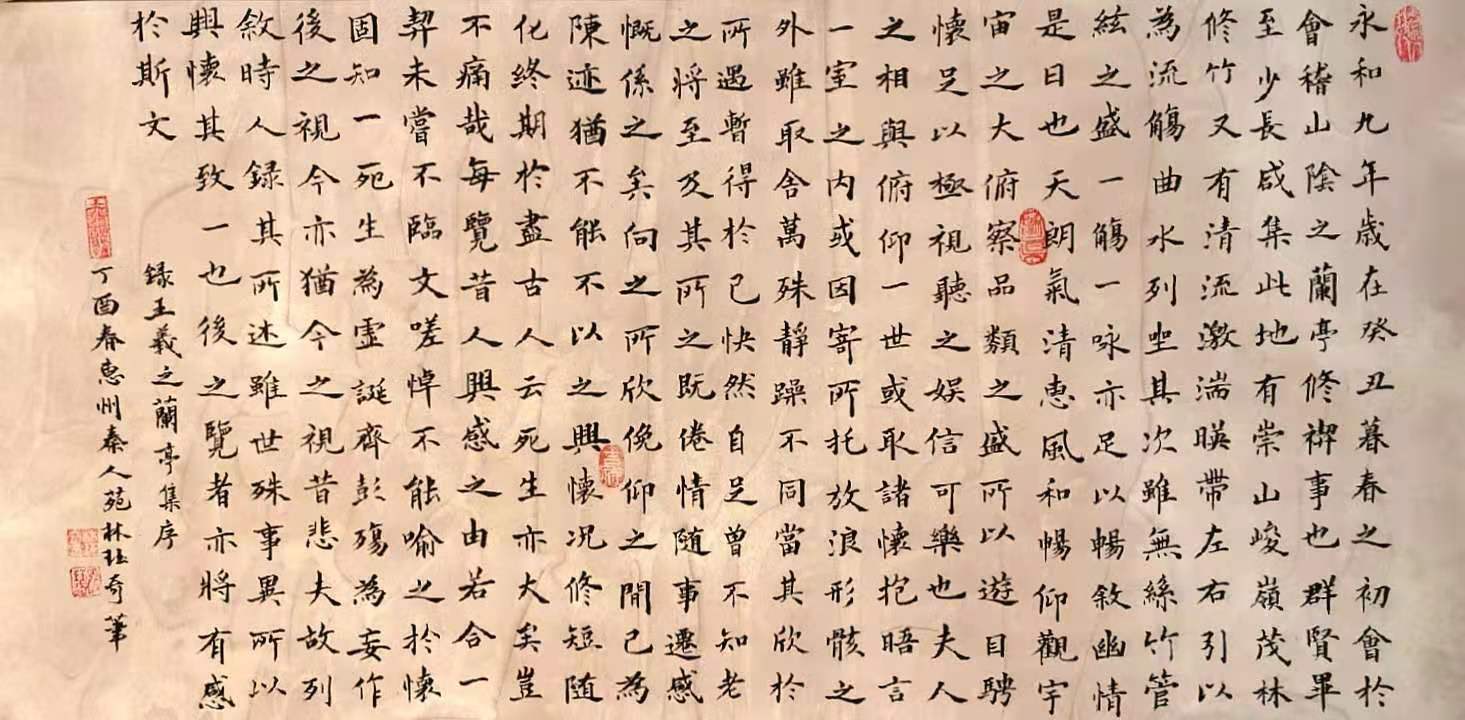 永和九年歲在癸丑暮春之初會於
會稽山陰之蘭亭修禊事也群賢畢
至少長咸集此地有崇山峻嶺茂林
修竹又有清流激湍暎帶左右引以
為流觴曲水列坐其次雖無絲竹管
絃之盛一觴一咏亦足以暢敘幽情
是日也天朗氣清惠風和暢仰觀宇
宙之大俯察品類之盛所以遊目騁
懷足以極視聽之娛信可樂也夫人
之相與俯仰一世或取諸懷抱晤言
一室之內或因寄所托放浪形骸之
外雖取舍萬殊靜躁不同當其欣於
所遇暫得於己快然自足曾不知老
之將至及其所之既倦情随事遷感
慨係之矣向之所欣俛仰之間已為
陳迹猶不能不以之興懷况修短随
化終期於盡古人云死生亦大矣豈
不痛哉每覽昔人興感之由若合一
契未嘗不臨文嗟悼不能喻之於懷
固知一死生為虛誕齊彭殤為妄作
後之視今亦猶今之視昔悲夫故列
敘時人録其所述雖世殊事異所以
興懷其致一也後之覽者亦將有感
於斯文
録王羲之蘭亭集序
丁酉春惠州秦人苑林珏奇筆